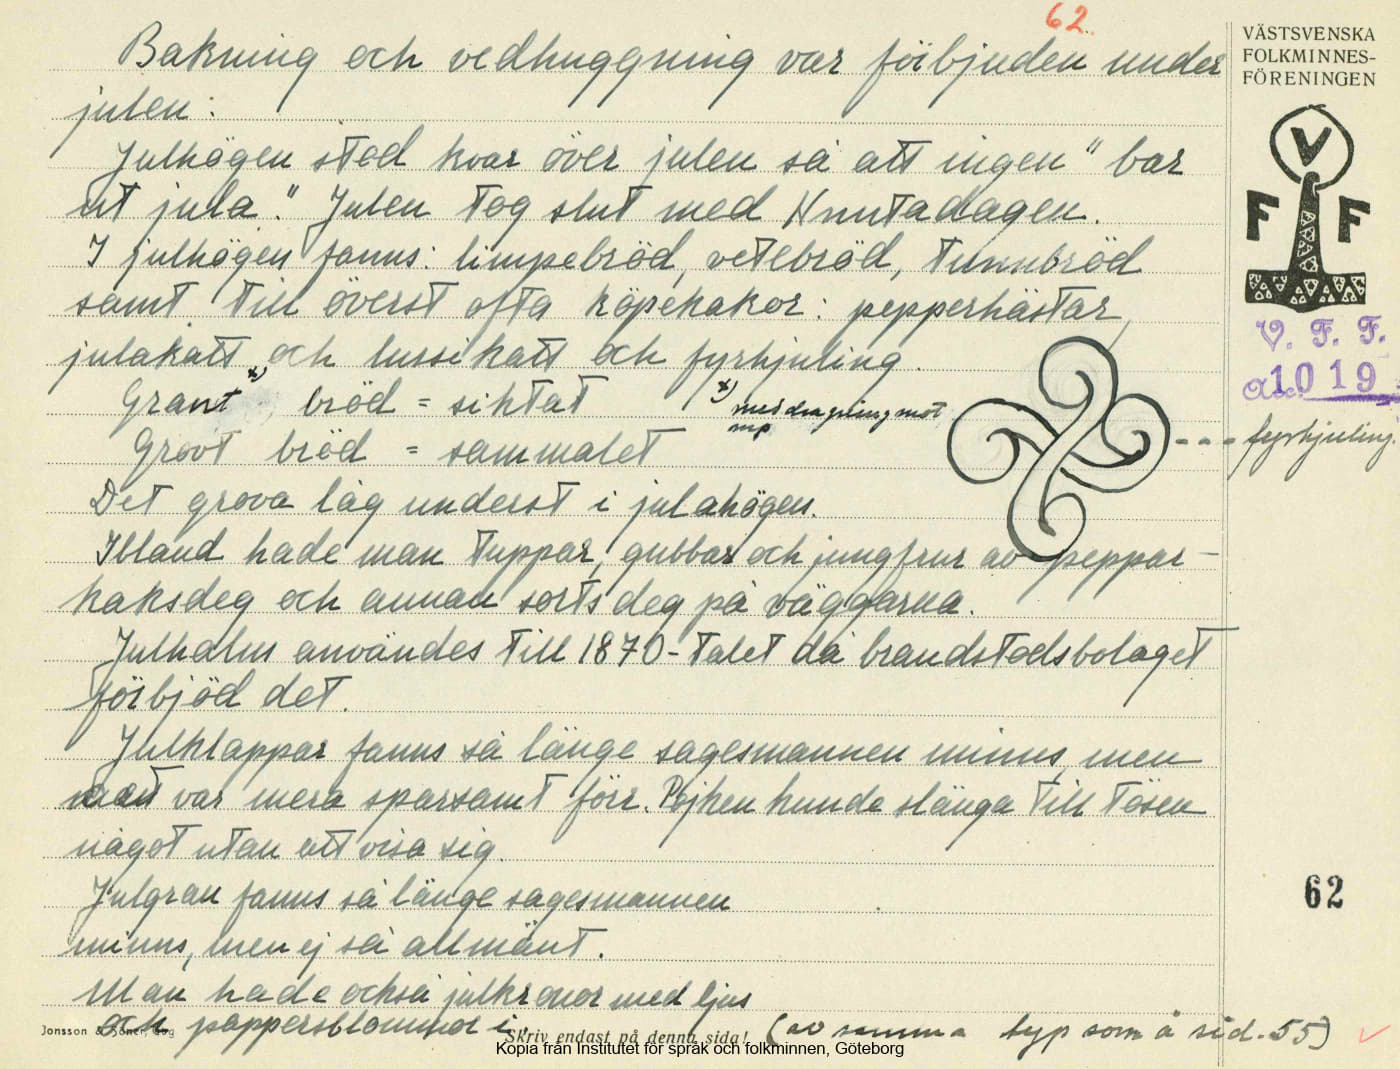 62.
Bakning och vedhuggning var förbjuden under
julen.
Julhögen stod kvar över julen så att ingen "bar
ut jula." Julen tog slut med Knutadagen.
I julhögen fanns: limpebröd, vetebröd, tunnbröd
samt till överst ofta köpekakor: pepperhästar,
julakatt x) och lussikatt och fyrhjuling.
Grant bröd = siktat
x) med dragning mot
Grovt bröd = sammalet
Det grova låg underst i julahögen.
Ibland hade man tuppar, gubbar och jungfrur av peppar-
kaksdeg och annan sorts deg på väggarna.
Julhalm användes till 1870-talet då brandstodsbolaget
förbjöd det.
Julklappar fanns så länge sagesmannen minns, men
man var mera sparsamt förr. Pojken kunde slänga till tösen
något utan att visa sig.
Julgran fanns så länge sagesmannen
minns, men ej så allmänt.
Man hade också julkronor med ljus
och pappersblommor i. (av samma typ som å sid. 55)
VÄSTSVENSKA
FOLKMINNES-
FÖRENINGEN
V
F F
V. F. F.
1019
fyrhjuling.
62
Jonsson & Söner, Gbg
Skriv endast på denna sida!
Kopia från Institutet för språk och folkminnen, Göteborg